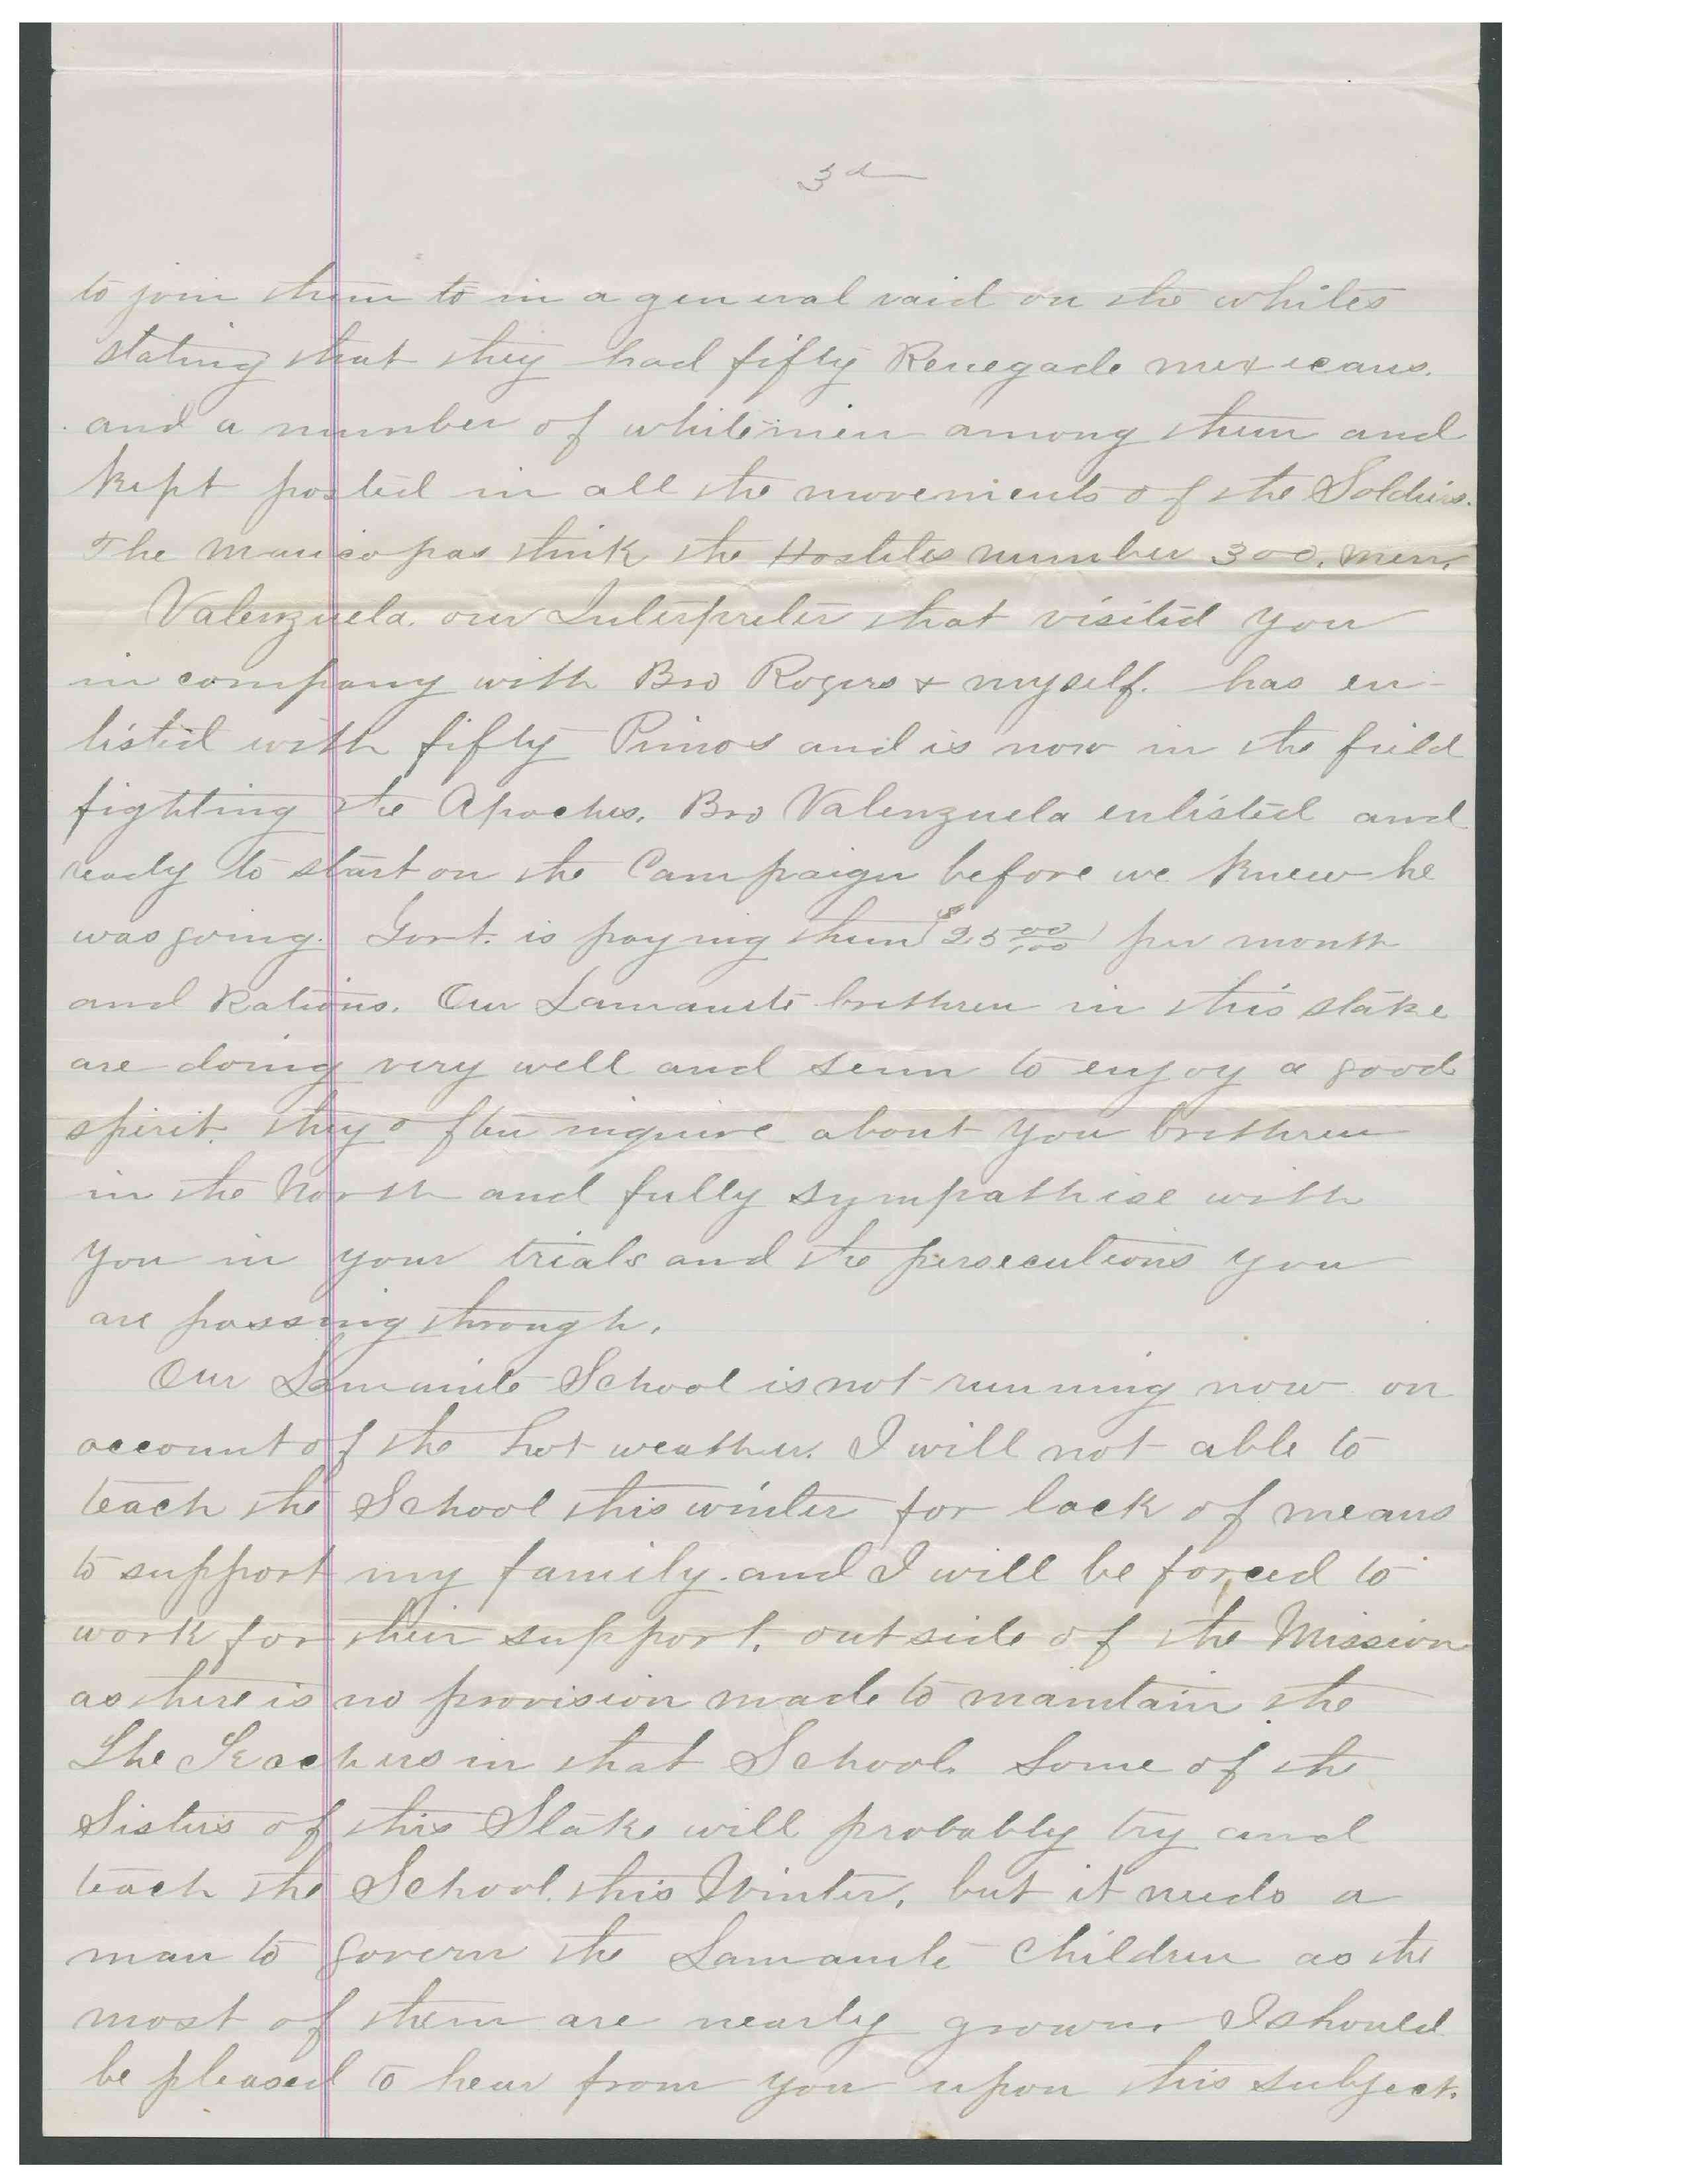 3d
to join them to in a general raid on the whites
stating that they had fifty Renegade mexicans.
and a number of white men among them and
kept posted in all the movements of the Soldiers.
The Maricopas think the Hostiles number 300. men.
Valenzuela. our Interpreter that visited you
in company with Bro Rogers & myself. has en-
listed with fifty Pimos and is now in the field
fighting the Apaches. Bro Valenzuela enlisted and
ready to start on the Campaign before we knew he
was going. Govt. is paying them $25 00/100 per month
and Rations. Our Lamanite brethren in this stake
are doing very well and seem to enjoy a good
spirit. they often inquire about you brethren
in the North and fully sympathise with
you in your trials and the persecutions you
are passing through.
Our Lamanite School is not running now on
account of the hot weather. I will not able to
teach the School this winter for lack of means
to support my family. and I will be forced to
work for their support. outside of the Mission
as there is no provision made to maintain the
The Teachers in that School. Some of the
Sisters of this Stake will probably try and
teach the School. this Winter, but it needs a
man to govern the Lamanite Children as the
most of them are nearly grown. I should
be pleased to hear from you upon this subject.